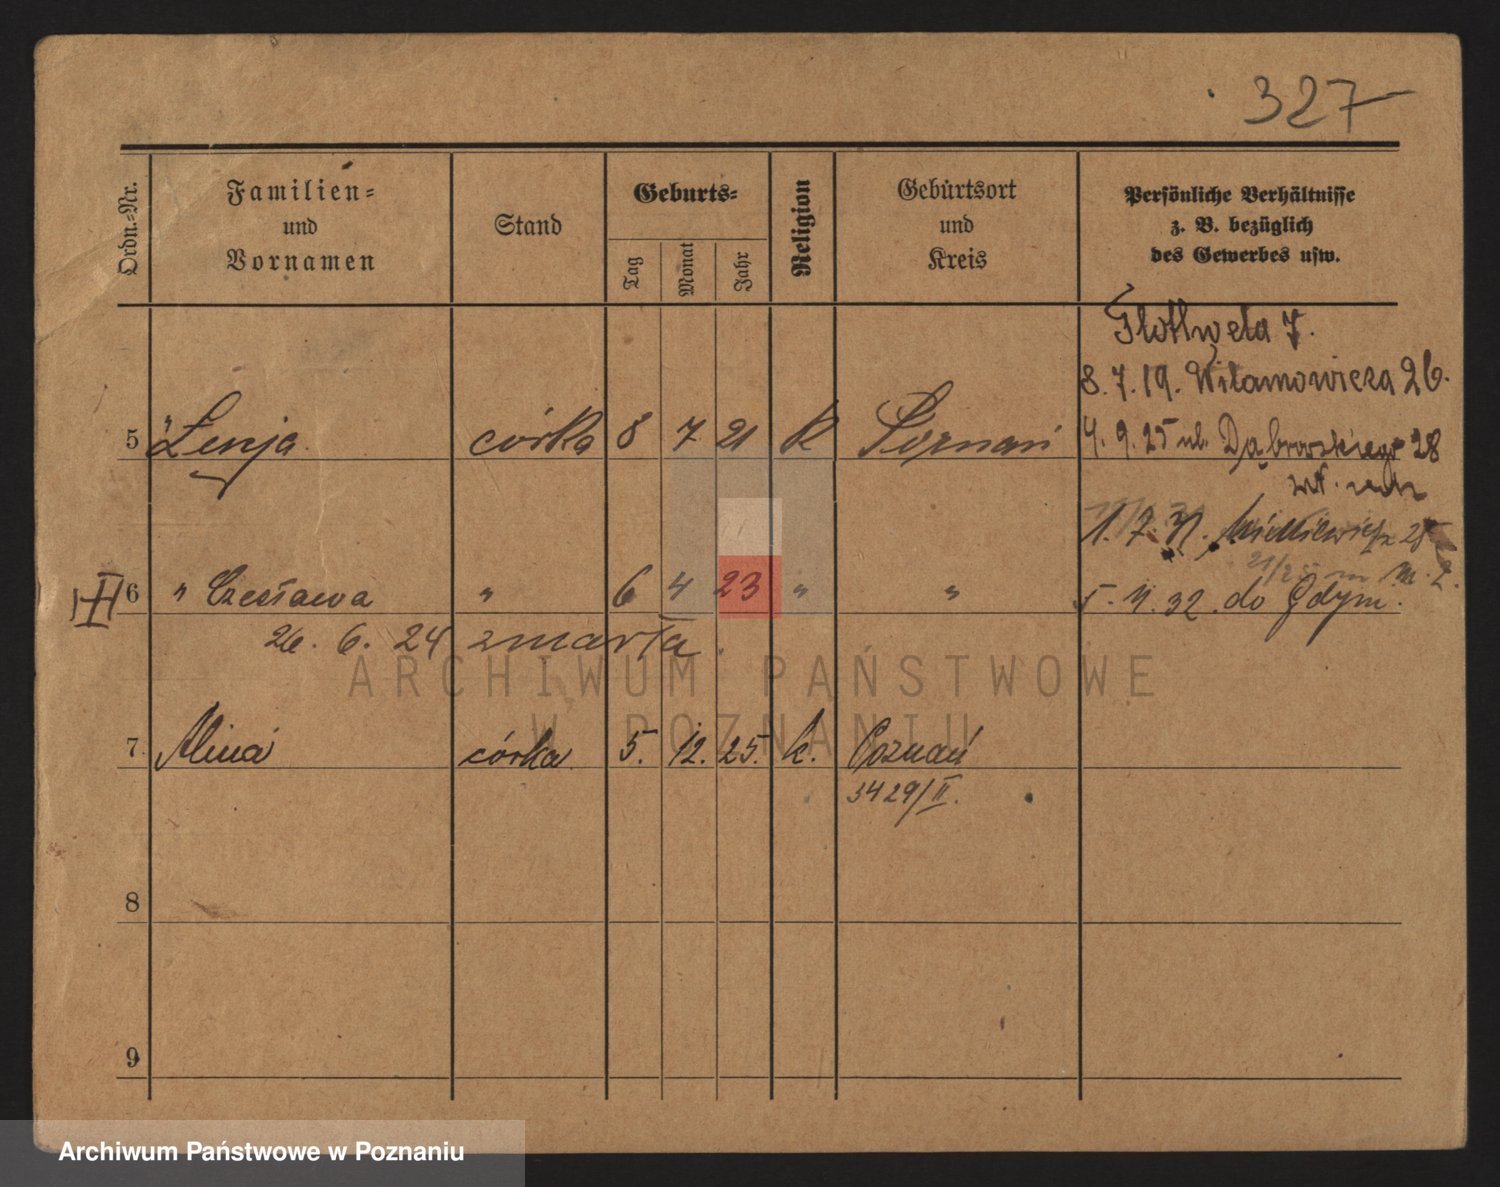 327
Ordn.-Nr.
Familien-
und
Vornamen
Stand
Geburts-
Tag
Monat
Jahr
Religion
Geburtsort
und
Kreis
Persönliche Verhältnisse
z. B. bezüglich
des Gewerbes usw.
7.
8.7.19. Wilamowicza 26.
5 " Zenja córka 8 7 21 k Poznań
4. 9. 25 ul. Dąbrowskiego 28
1. 7. 31. Mickiewicza 28
6 " Czesława " 6 4 23 " "
5. 11. 32. do Gdyni.
26. 6. 24 zmarła.
ARCHIWUM PAŃSTWOWE
W POZNANIU
7. Alina córka 5. 12. 25. k. Poznań
3429/II.
8
9
Archiwum Państwowe w Poznaniu